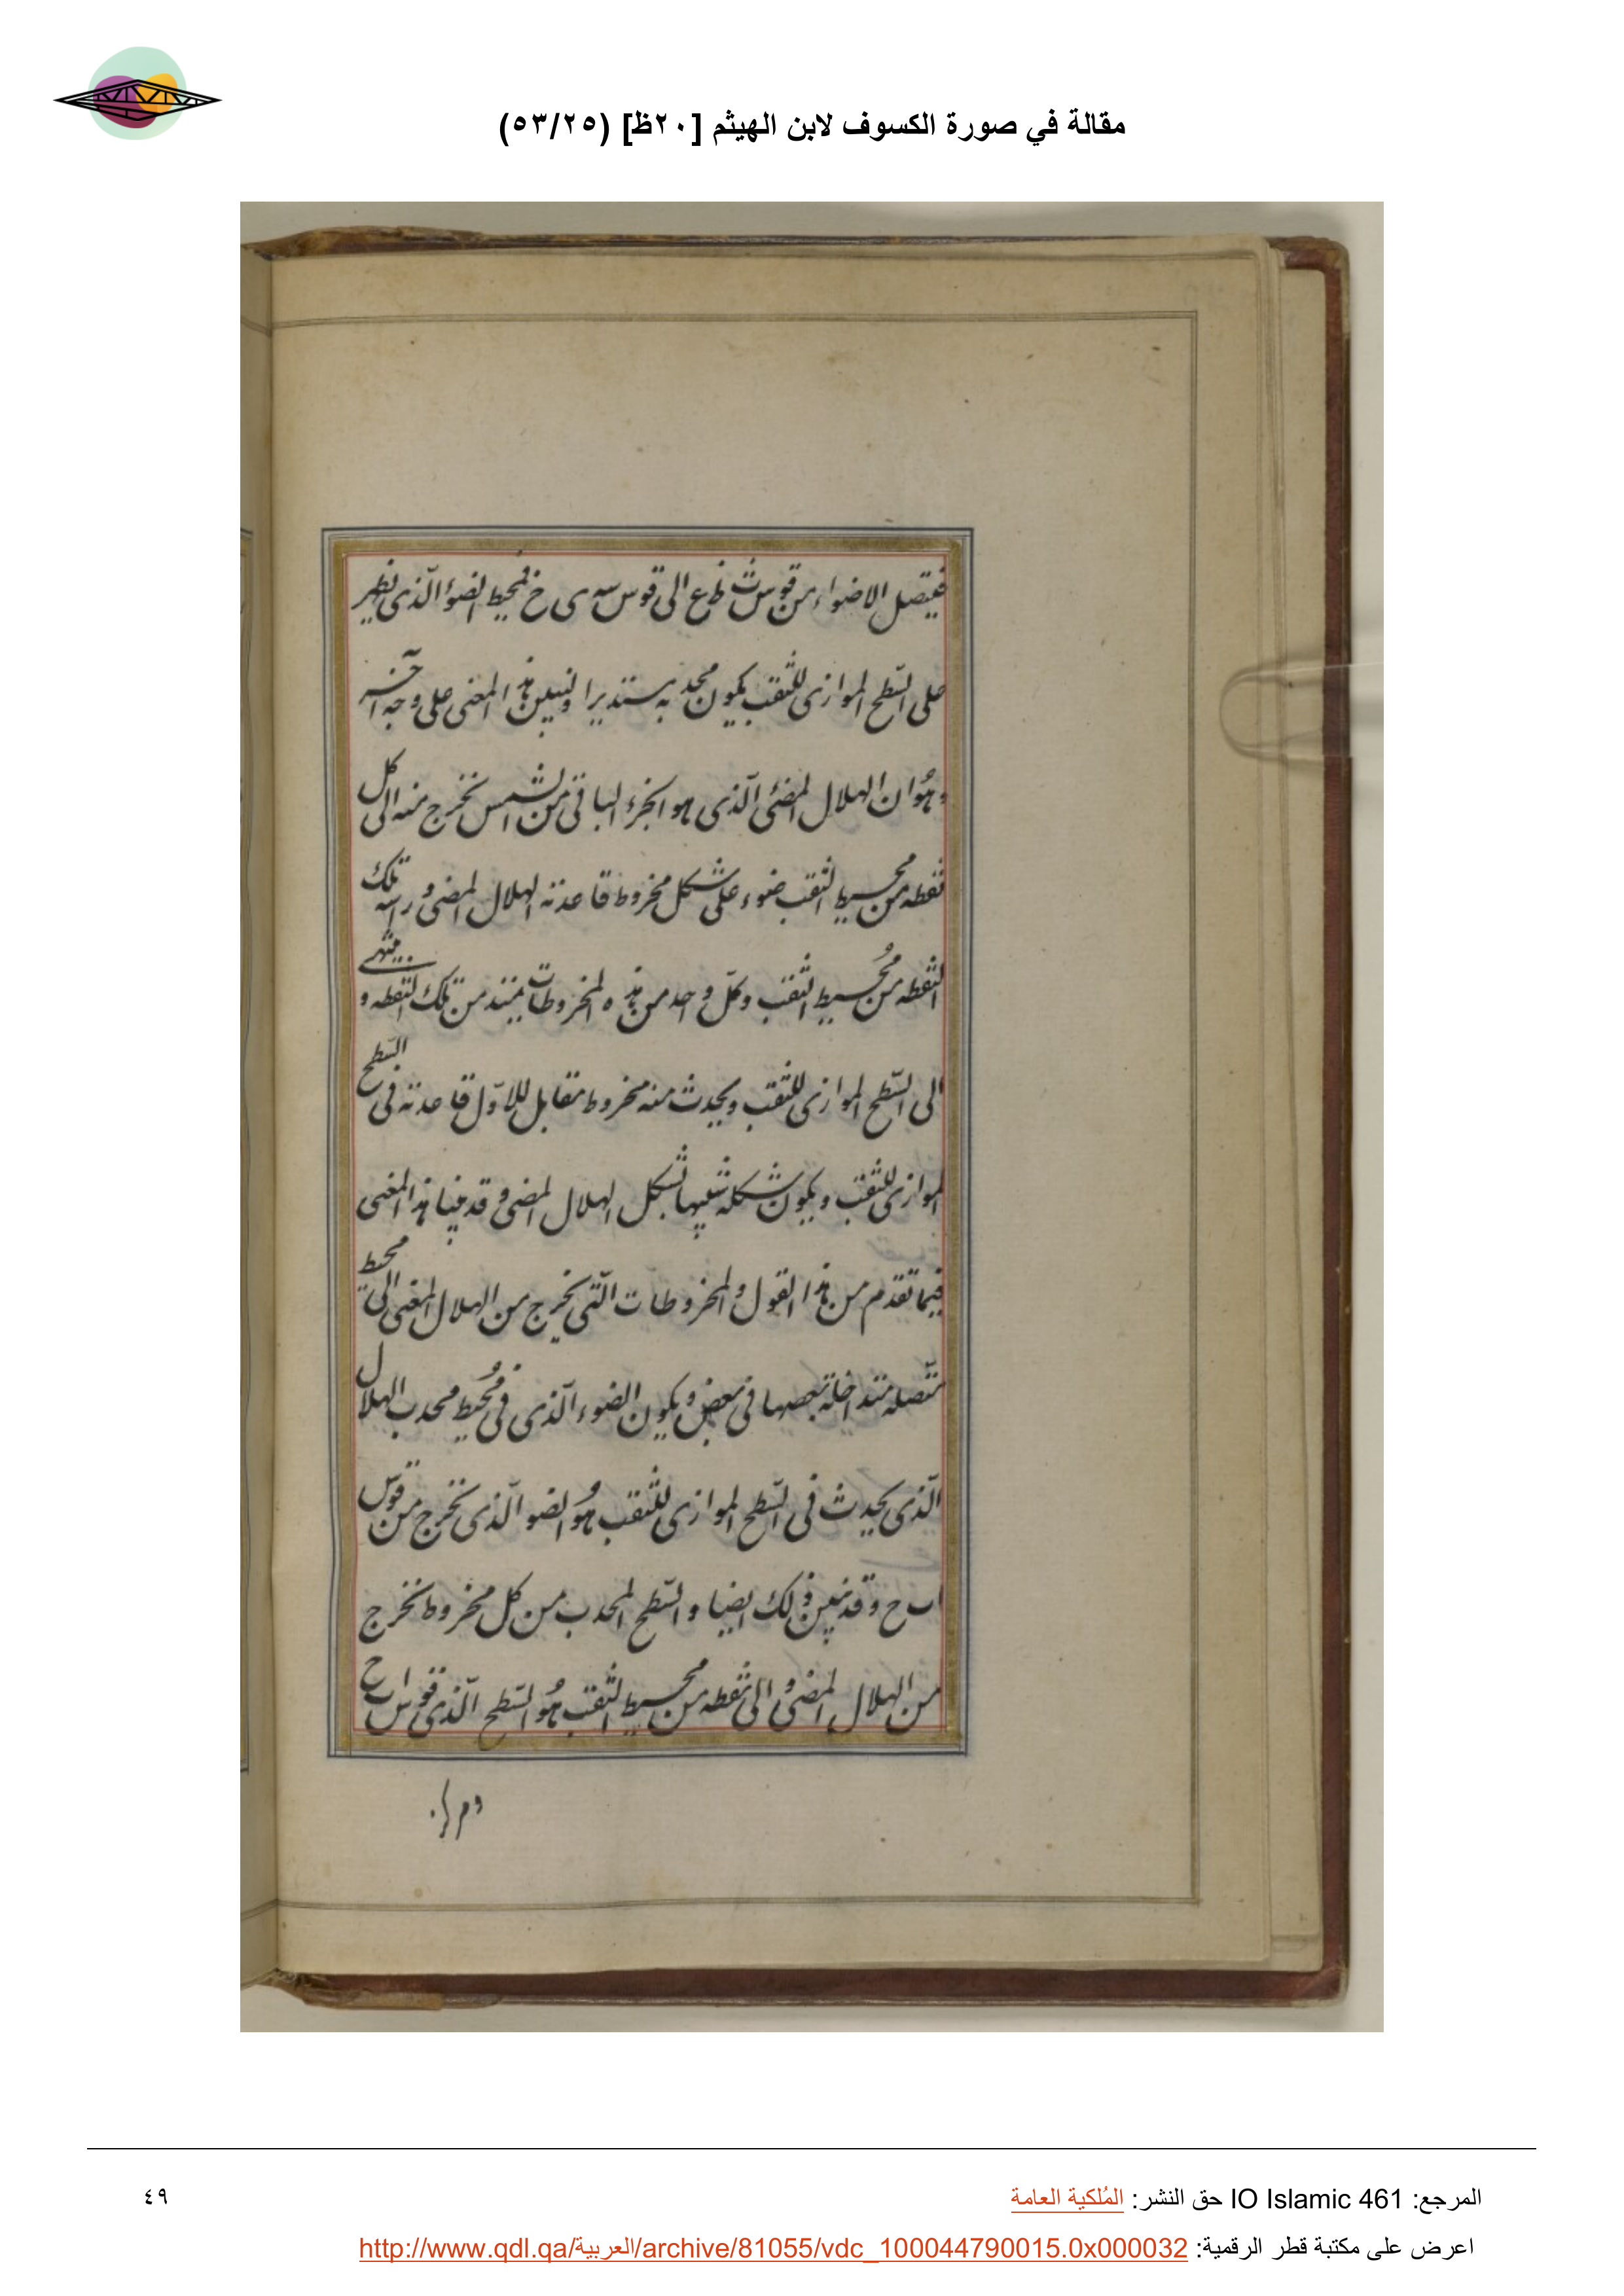 مقالة في صورة الكسوف لابن الهيثم [٢٠ظ] (٥٣/٢٥)
فيتصل الاضواء من قوس ث ظ ع الى قوس سه ى خ فمحيط الضوء الّذى يظهر
على السّطح الموازى للثقب يكون محدبه مستديرا ونبين هذا المعنى على وجه آخر
وهُو ان الهلال المضئ الّذى هو الجزء الباقى من الشمس تخرج منه الى كل
نقطه من محيط الثقب ضوء على شكل مخروط قاعدته الهلال المضئ وراسه تلك
النقطه من مُحيط الثقب وكلّ واحد من هذه المخروطات يمتد من تلك النقطه و ينتهى
الى السّطح الموازى للثقب ويحدث منه مخروط مقابل للاوّل قاعدته فى السّطح
الموازى للثقب ويكون شكله شبيها بشكل الهلال المضئ وقد بينا هذا المعنى
فيما تقدم من هذا القول والمخروطات الّتى يخرج من الهلال المغنى الى محيط
متّصله متداخلة بعضها فى بعض ويكون الضوء الّذى فى مُحيط محدب الهلال
الّذى يحدث فى السّطح الموازى للثقب هُو الضو الّذى تخرج من قوس
ا ب ح وقد تبين ذلك ايضا والسّطح المحدب من كل مخروط تخرج
من الهلال المضئ الى نقطه من محيط الثقب هُو السّطح الّذى قوس ا ب ح
٤٩
المرجع: IO Islamic 461 حق النشر: المُلكية العامة
اعرض على مكتبة قطر الرقمية: http://www.qdl.qa/العربية/archive/81055/vdc_100044790015.0x000032